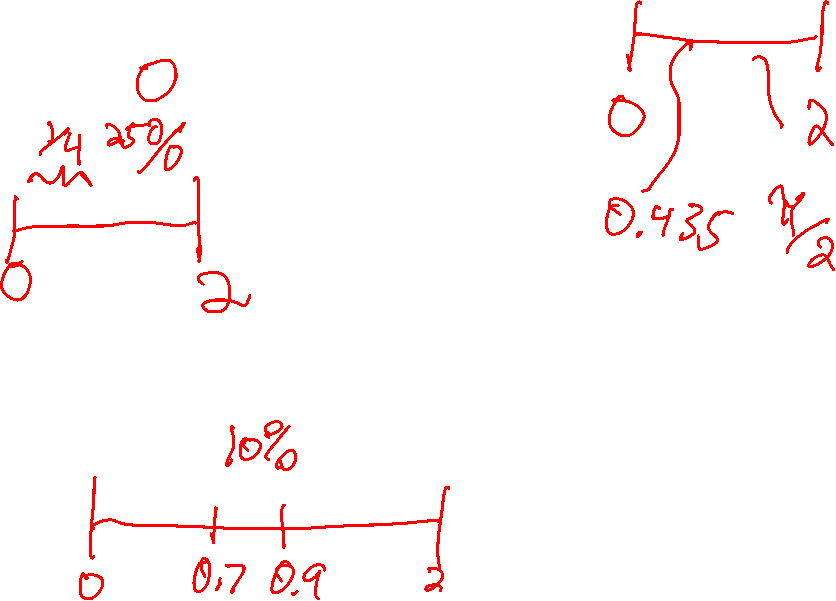 0
1/4 25%
0 2
0 2
0.435 π/2
10%
0 0.7 0.9 2